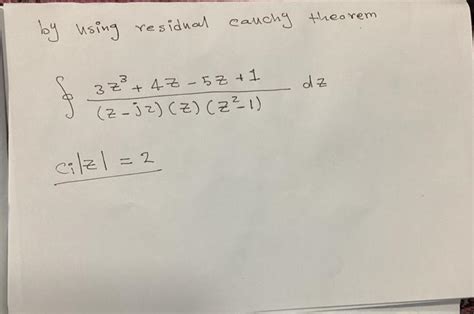 by using residual cauchy theorem
∮ 3z³ + 4z - 5z + 1 / (z - jz) (z) (z² - 1) dz
c; |z| = 2